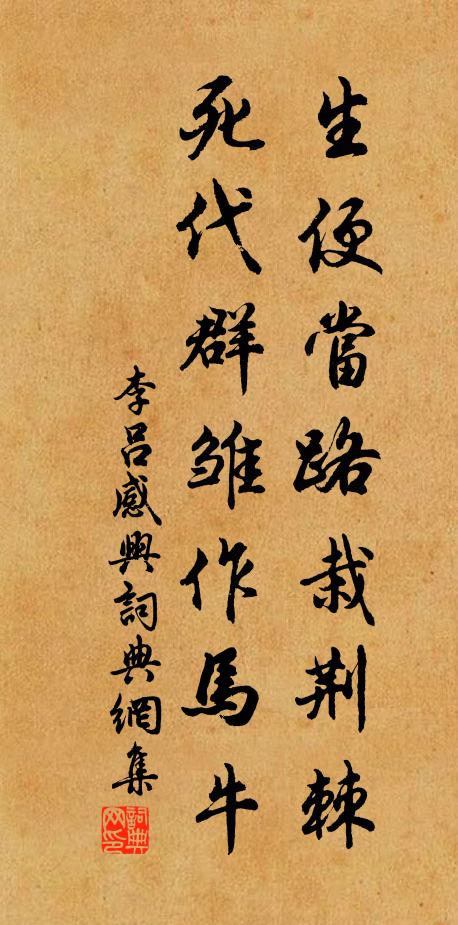 生便當路栽荆棘
死代群雏作馬牛
李吕感興詞典網集
詞典网印